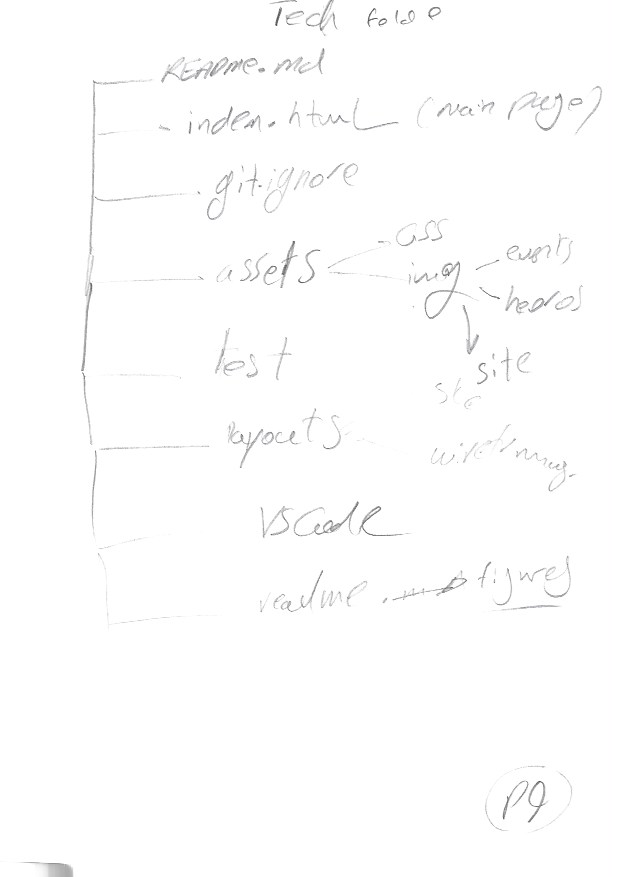 Tech folde
README.md
index.html (main page)
git.ignore
css
assets img events
heoros
site
test
layouts
VSCode
readme. figures
P9